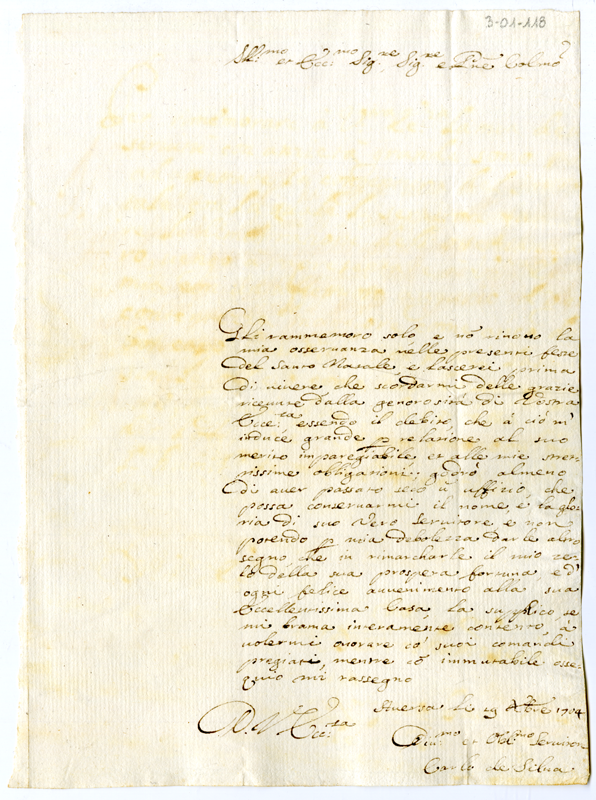 3-01-118
Ill.mo et Ecc.mo Sig.re, Sig.re e Pne Colmo
Gli rammemoro solo, e nõ rinovo la
mia osservanza nelle presenti feste
del Santo Natale, e lascerei prima
di vivere che scordarmi delle grazie
ricevute dalla generosità di Vostra
Ecce.za essendo il debito, che à ciò m'
induce grande p relazione al suo
merito impareggiabile et alle mie stret-
tissime obligationi; godrò almeno
di aver passato seco ũ uffizio, che
possa conservarmi il nome, e la glo-
ria di suo vero servitore e non
potendo p mia debolezza darle altro
segno che in rimarcharle il mio ze-
lo della sua prospera fortuna, e d'
ogni felice avvenimento alla sua
Eccellentissima Casa, la supplico, se
mi brama interamente contento, à
volermi onorare co' suoi comandi
pregiati, mentre cõ immutabile osse-
quio mi rassegno
Aversa li 19 Xbre 1704
D. V. Ecc.za
Div.mo et Obb.mo Servitor
Carlo de Silva